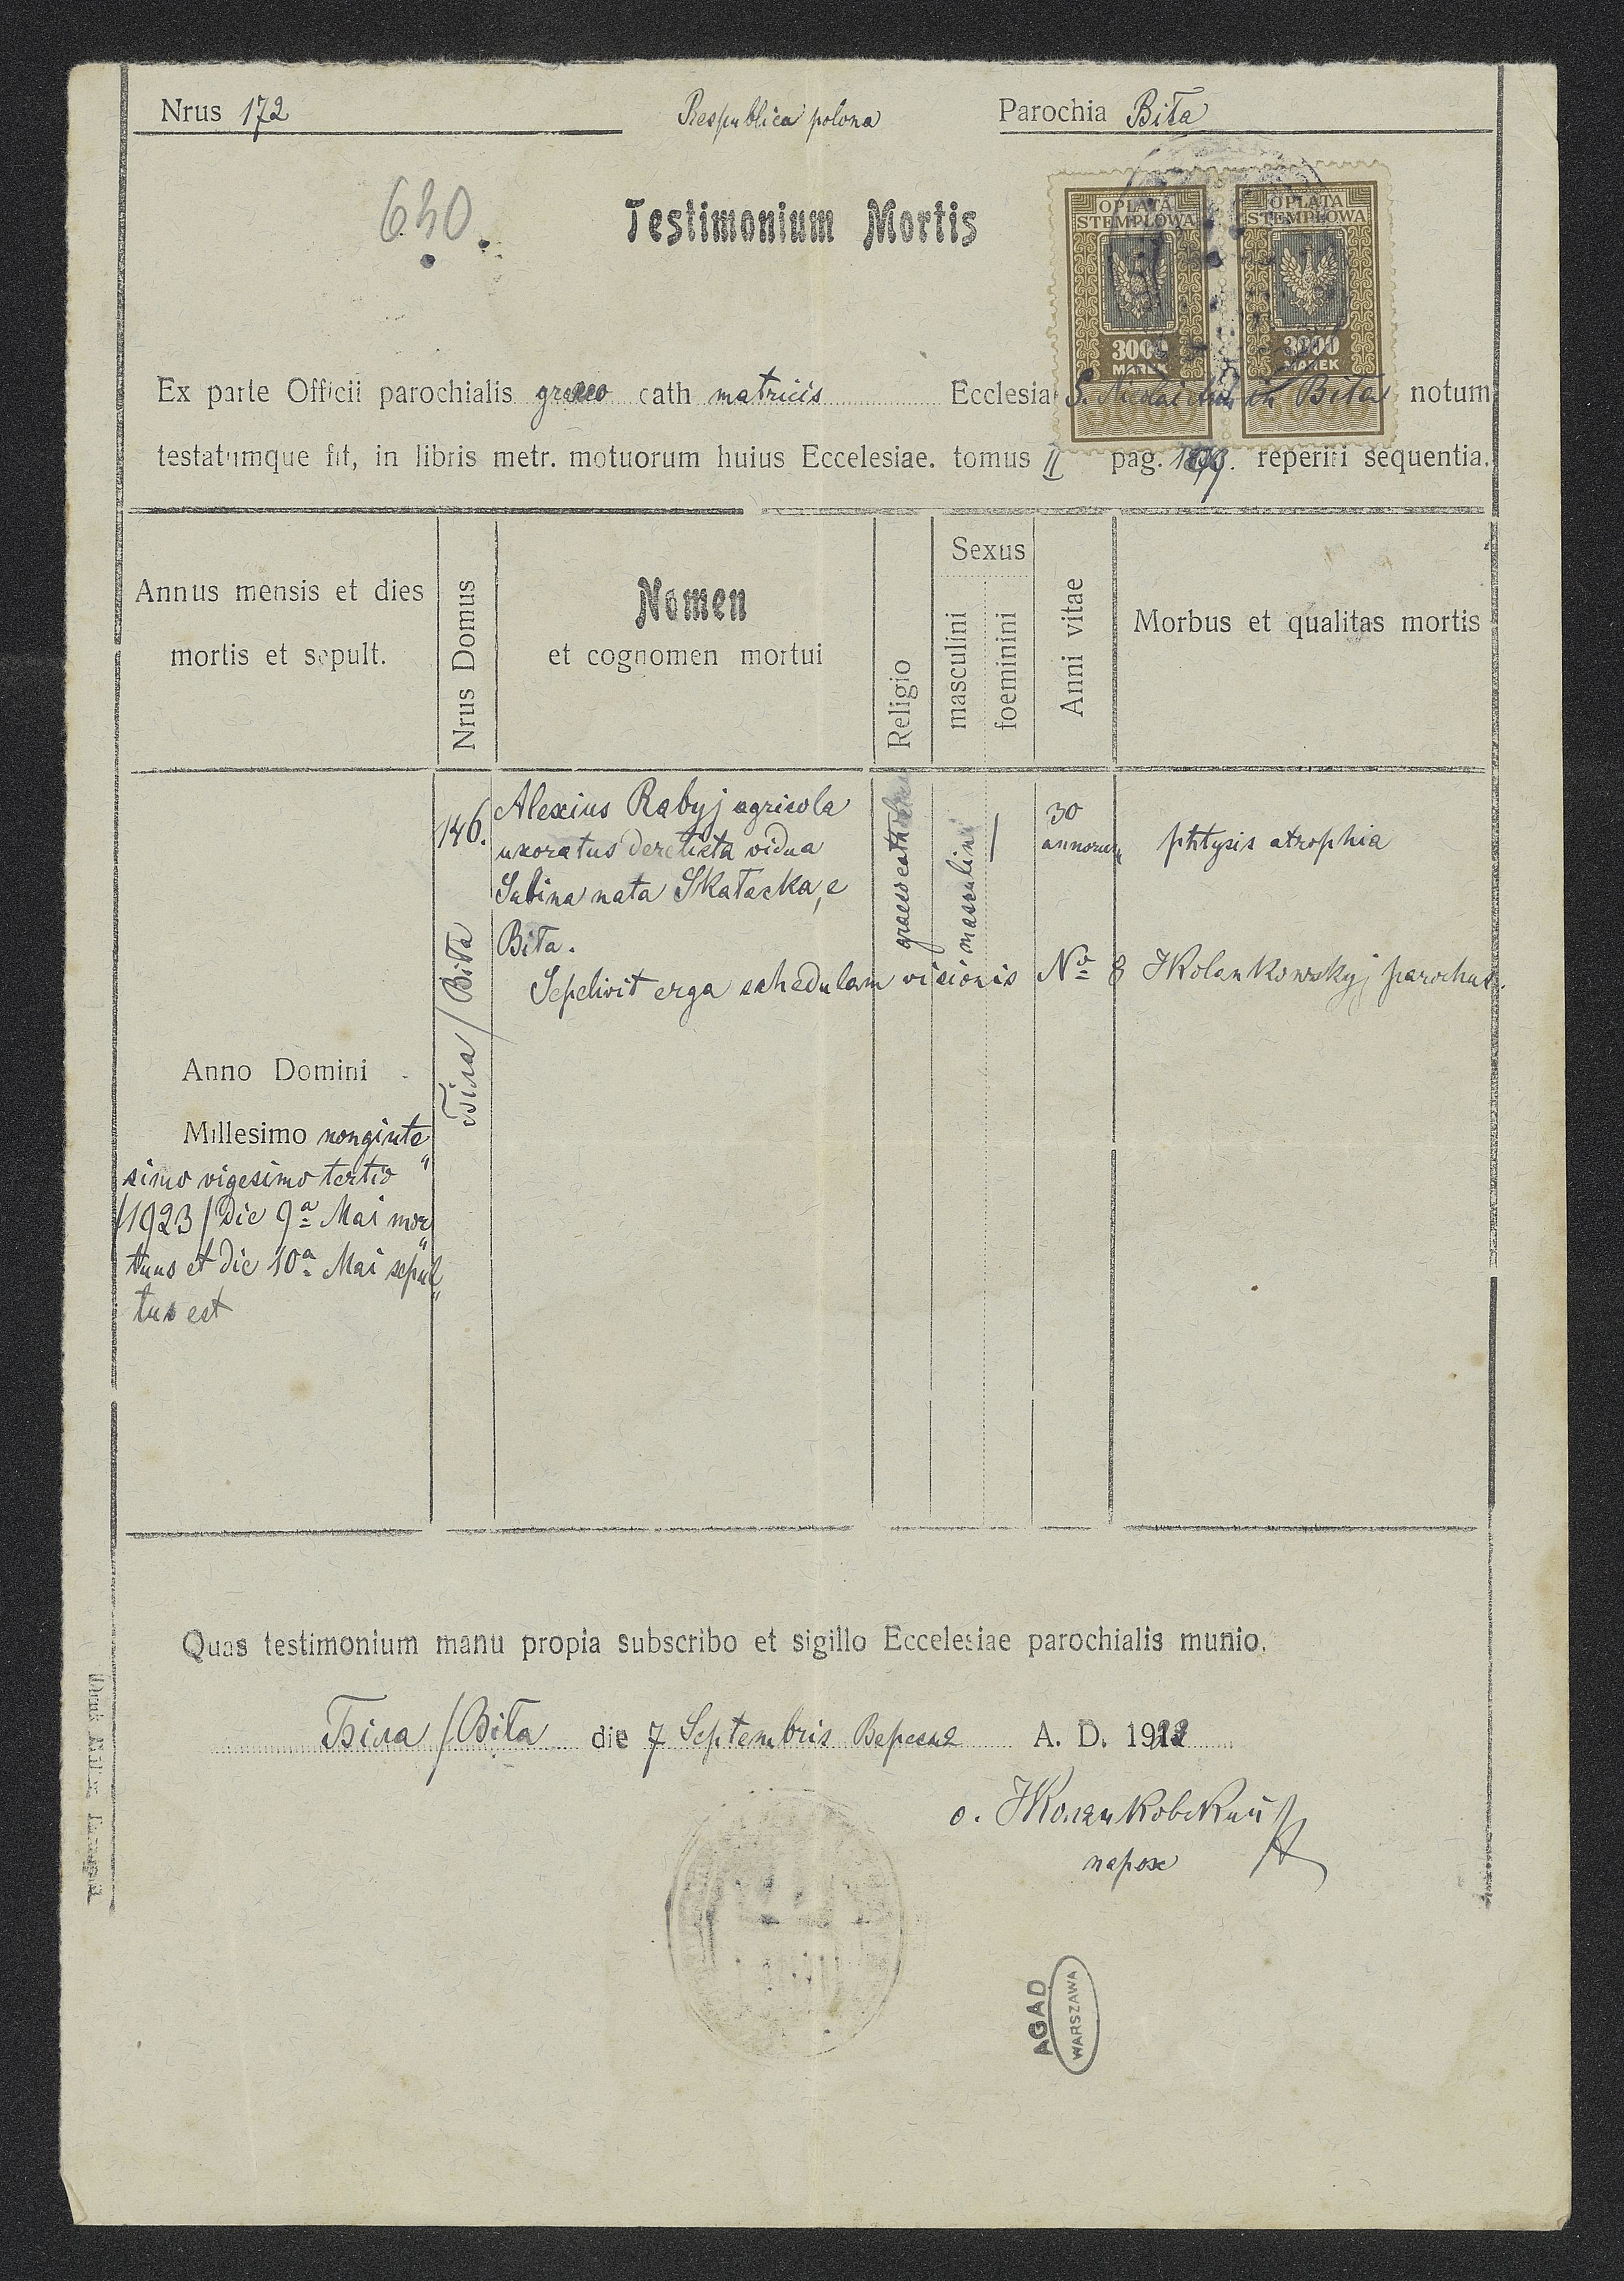 Nrus 172
Respublica polona
Parochia Biła
640.
Testimonium Mortis
OPŁATA STEMPLOWA
3000 MAREK
OPŁATA STEMPLOWA
3000 MAREK
Ex parte Officii parochialis graeco cath matricis Ecclesia S. in Biła notum
testatumque fit, in libris metr. motuorum huius Eccelesiae. tomus II pag. reperiri sequentia.
Annus mensis et dies
mortis et sepult.
Nrus Domus
Nomen
et cognomen mortui
Religio
Sexus
masculini
foeminini
Anni vitae
Morbus et qualitas mortis
146.
Біла / Biła
Alexius Rabyj agricola
uxoratus derelicta vidua
Sabina nata Skałacka, e
Biła.
graeco cath
masculini
30
annorum
phtysis atrophia
Sepelivit erga schedulam visionis No 8 Kolankowskyj parochus.
Anno Domini
Millesimo nonginte„
simo vigesimo tertio
/1923/ die 9a Mai mor„
tuus et die 10a Mai sepul„
tus est
Quas testimonium manu propia subscribo et sigillo Eccelesiae parochialis munio.
Біла /Biła die 7 Septembris Вересня A. D. 192
о. Колянковский
парох
AGAD
WARSZAWA